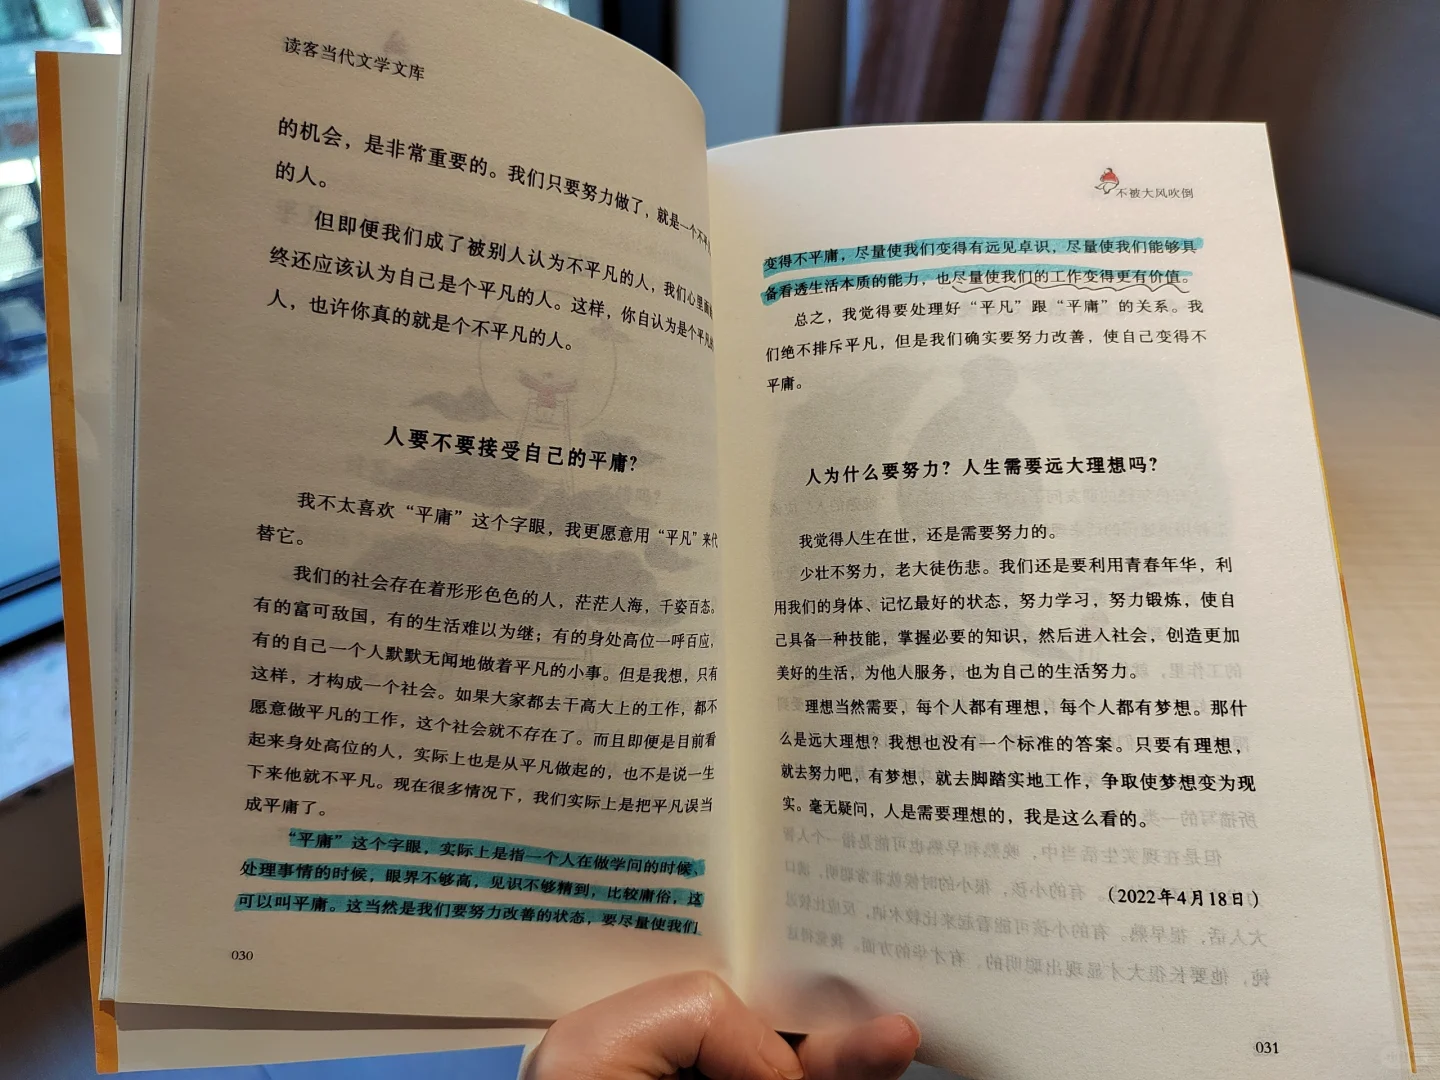 读客当代文学文库
的机会，是非常重要的。我们只要努力做了，就是一个不平凡
的人。
但即便我们成了被别人认为不平凡的人，我们心里面
终还应该认为自己是个平凡的人。这样，你自认为是个平凡的
人，也许你真的就是个不平凡的人。
人要不要接受自己的平庸？
我不太喜欢“平庸”这个字眼，我更愿意用“平凡”来代
替它。
我们的社会存在着形形色色的人，茫茫人海，千姿百态。
有的富可敌国，有的生活难以为继；有的身处高位一呼百应，
有的自己一个人默默无闻地做着平凡的小事。但是我想，只有
这样，才构成一个社会。如果大家都去干高大上的工作，都不
愿意做平凡的工作，这个社会就不存在了。而且即便是目前看
起来身处高位的人，实际上也是从平凡做起的，也不是说一生
下来他就不平凡。现在很多情况下，我们实际上是把平凡误当
成平庸了。
“平庸”这个字眼，实际上是指一个人在做学问的时候、
处理事情的时候，眼界不够高，见识不够精到，比较庸俗，这
可以叫平庸。这当然是我们要努力改善的状态，要尽量使我们
030
不被大风吹倒
变得不平庸，尽量使我们变得有远见卓识，尽量使我们能够具
备看透生活本质的能力，也尽量使我们的工作变得更有价值。
总之，我觉得要处理好“平凡”跟“平庸”的关系。我
们绝不排斥平凡，但是我们确实要努力改善，使自己变得不
平庸。
人为什么要努力？人生需要远大理想吗？
我觉得人生在世，还是需要努力的。
少壮不努力，老大徒伤悲。我们还是要利用青春年华，利
用我们的身体、记忆最好的状态，努力学习，努力锻炼，使自
己具备一种技能，掌握必要的知识，然后进入社会，创造更加
美好的生活，为他人服务，也为自己的生活努力。
理想当然需要，每个人都有理想，每个人都有梦想。那什
么是远大理想？我想也没有一个标准的答案。只要有理想，
就去努力吧，有梦想，就去脚踏实地工作，争取使梦想变为现
实。毫无疑问，人是需要理想的，我是这么看的。
（2022年4月18日）
031